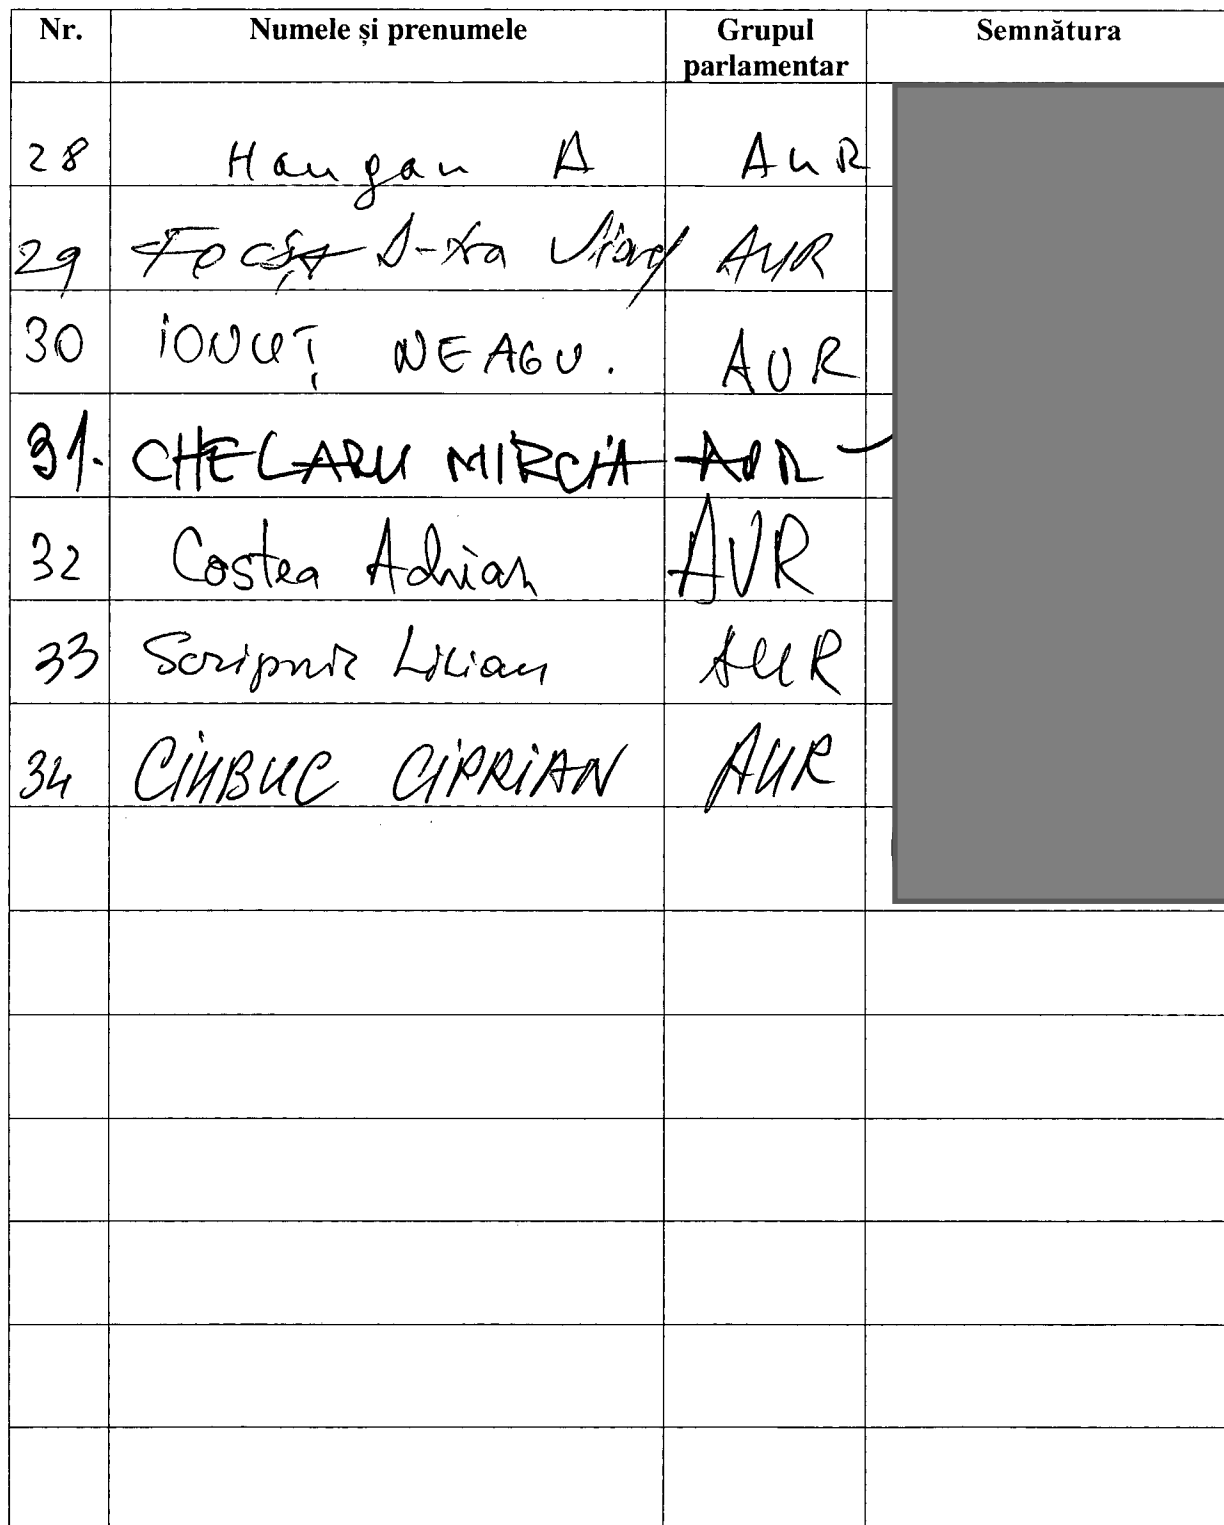 Nr. Numele și prenumele Grupul parlamentar Semnătura
28 Haugan A AUR
29 Focșa D-tra AUR
30 IONUȚ NEAGU. AUR
31. CHELARU MIRCIA AUR
32 Costea Adrian AUR
33 Scripnic Lilian AUR
34 CIUBUC CIPRIAN AUR